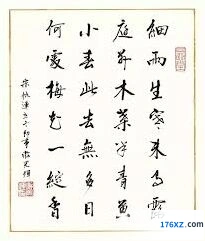 細雨生寒未有霜
庭前木葉半青黃
小春此去無多日
何處梅花一綻香
宋仇遠立冬即事
176XZ.com